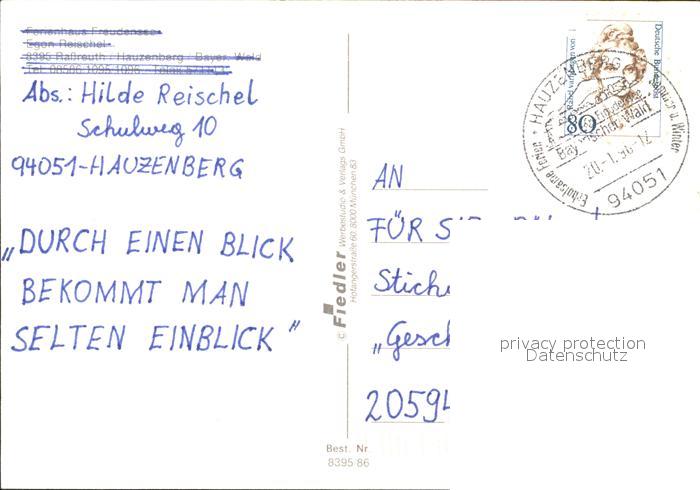 Ferienhaus Freudensee
Egon Reischel
8395 Raßreuth / Hauzenberg / Bayer. Wald
Abs.: Hilde Reischel
Schulweg 10
94051-HAUZENBERG
„DURCH EINEN BLICK
BEKOMMT MAN
SELTEN EINBLICK"
© Fiedler Werbestudio & Verlags GmbH
Hofangerstraße 60, 8000 München 83
Best. Nr.
8395 86
Deutsche Bundespost
80
HAUZENBERG
Erholsame Ferien
Sommer u. Winter
Bayerischer Wald
94051
AN
FÜR
Stich
„Gesch
2059
privacy protection
Datenschutz